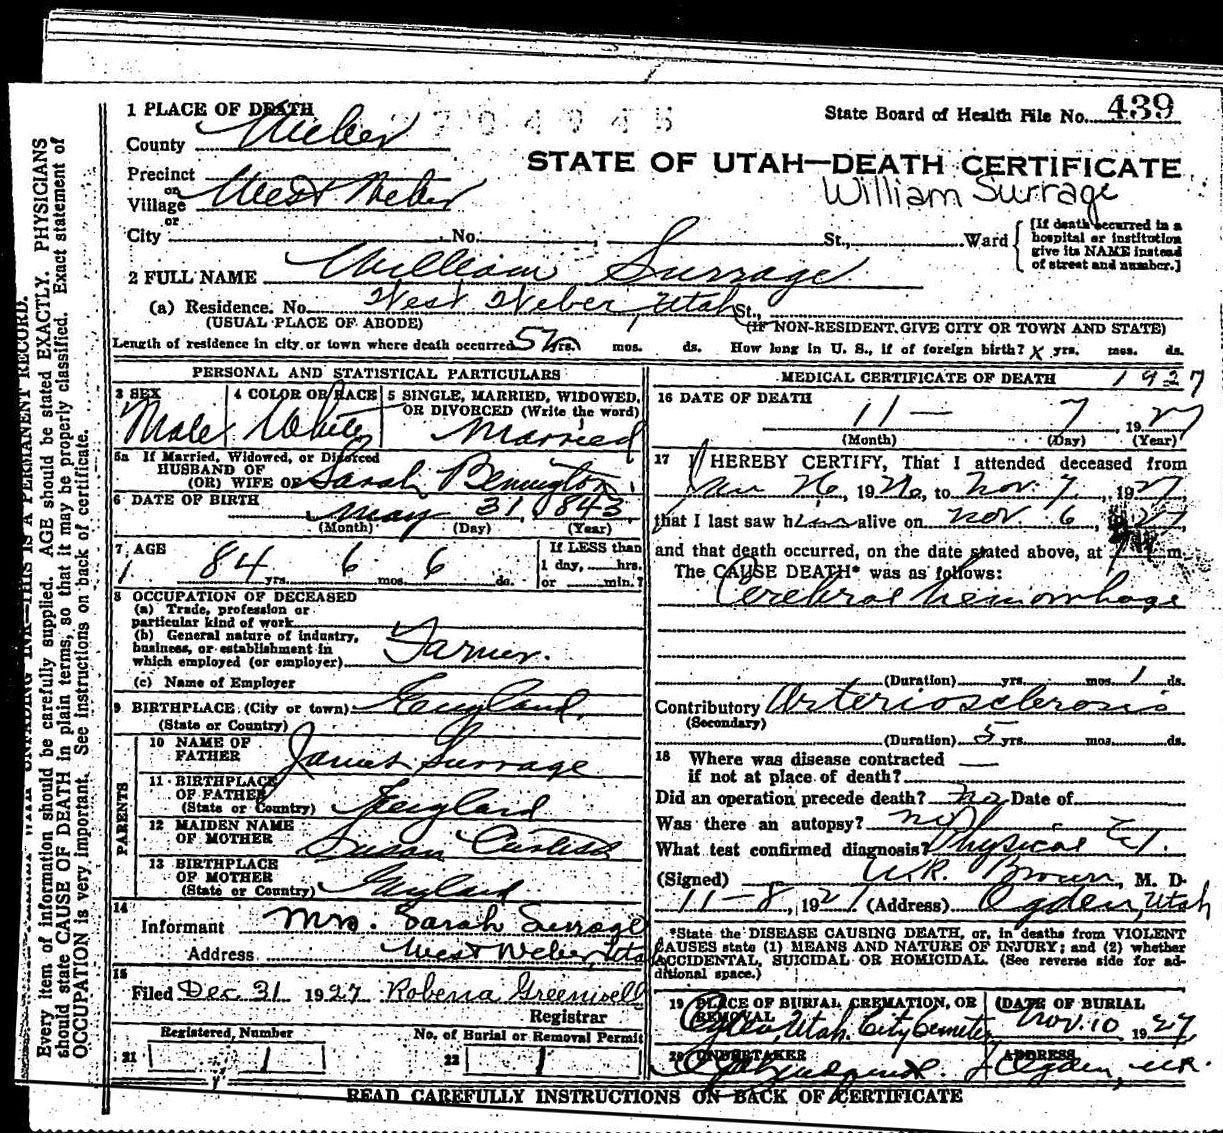 1 PLACE OF DEATH
2704945
State Board of Health File No. 439
County Weber
STATE OF UTAH—DEATH CERTIFICATE
Precinct
or
Village West Weber
William Surrage
or
City No. St., Ward
[If death occurred in a
hospital or institution
give its NAME instead
of street and number.]
2 FULL NAME William Surrage
(a) Residence. No. West Weber, Utah St.,
(USUAL PLACE OF ABODE) (IF NON-RESIDENT GIVE CITY OR TOWN AND STATE)
Length of residence in city or town where death occurred yrs. mos. ds. How long in U. S., if of foreign birth? x yrs. mos. ds.
PERSONAL AND STATISTICAL PARTICULARS
3 SEX 4 COLOR OR RACE 5 SINGLE, MARRIED, WIDOWED,
OR DIVORCED (Write the word)
Male White Married
5a If Married, Widowed, or Divorced
HUSBAND OF
(OR) WIFE OF Sarah
6 DATE OF BIRTH May 31, 1843
(Month) (Day) (Year)
7 AGE
84 yrs. 6 mos. 6 ds.
If LESS than
1 day, hrs.
or min.?
8 OCCUPATION OF DECEASED
(a) Trade, profession or
particular kind of work
(b) General nature of industry,
business, or establishment in
which employed (or employer) Farmer.
(c) Name of Employer
9 BIRTHPLACE (City or town) England
(State or Country)
PARENTS
10 NAME OF
FATHER James Surrage
11 BIRTHPLACE
OF FATHER
(State or Country) England
12 MAIDEN NAME
OF MOTHER Susan
13 BIRTHPLACE
OF MOTHER
(State or Country) England
14
Informant Mrs. Sarah Surrage
Address West Weber, Utah
15
Filed Dec 31 1927 Roberta Greenwell
Registrar
Registered Number No. of Burial or Removal Permit
21 1 22 1
MEDICAL CERTIFICATE OF DEATH 1927
16 DATE OF DEATH
11 — 7 1927
(Month) (Day) (Year)
17 I HEREBY CERTIFY, That I attended deceased from
26, 1926, to Nov. 7, 1927
that I last saw him alive on Nov. 6, 1927,
and that death occurred, on the date stated above, at m.
The CAUSE DEATH* was as follows:
Cerebral hemorrhage
(Duration) yrs. mos. 1 ds.
Contributory Arteriosclerosis
(Secondary)
(Duration) 5 yrs. mos. ds.
18 Where was disease contracted
if not at place of death? —
Did an operation precede death? no Date of
Was there an autopsy? no
What test confirmed diagnosis? Physical
(Signed) Brown, M. D.
11—8, 1927 (Address) Ogden, Utah
*State the DISEASE CAUSING DEATH, or, in deaths from VIOLENT
CAUSES state (1) MEANS AND NATURE OF INJURY; and (2) whether
ACCIDENTAL, SUICIDAL OR HOMICIDAL. (See reverse side for ad-
ditional space.)
19 PLACE OF BURIAL, CREMATION, OR
REMOVAL
DATE OF BURIAL
Ogden, Utah. City Cemetery Nov. 10 1927
20 UNDERTAKER ADDRESS
Ogden,
READ CAREFULLY INSTRUCTIONS ON BACK OF CERTIFICATE
RECORD.
THIS IS A PERMANENT
Every item of information should be carefully supplied. AGE should be stated EXACTLY. PHYSICIANS
should state CAUSE OF DEATH in plain terms, so that it may be properly classified. Exact statement of
OCCUPATION is very important. See instructions on back of certificate.